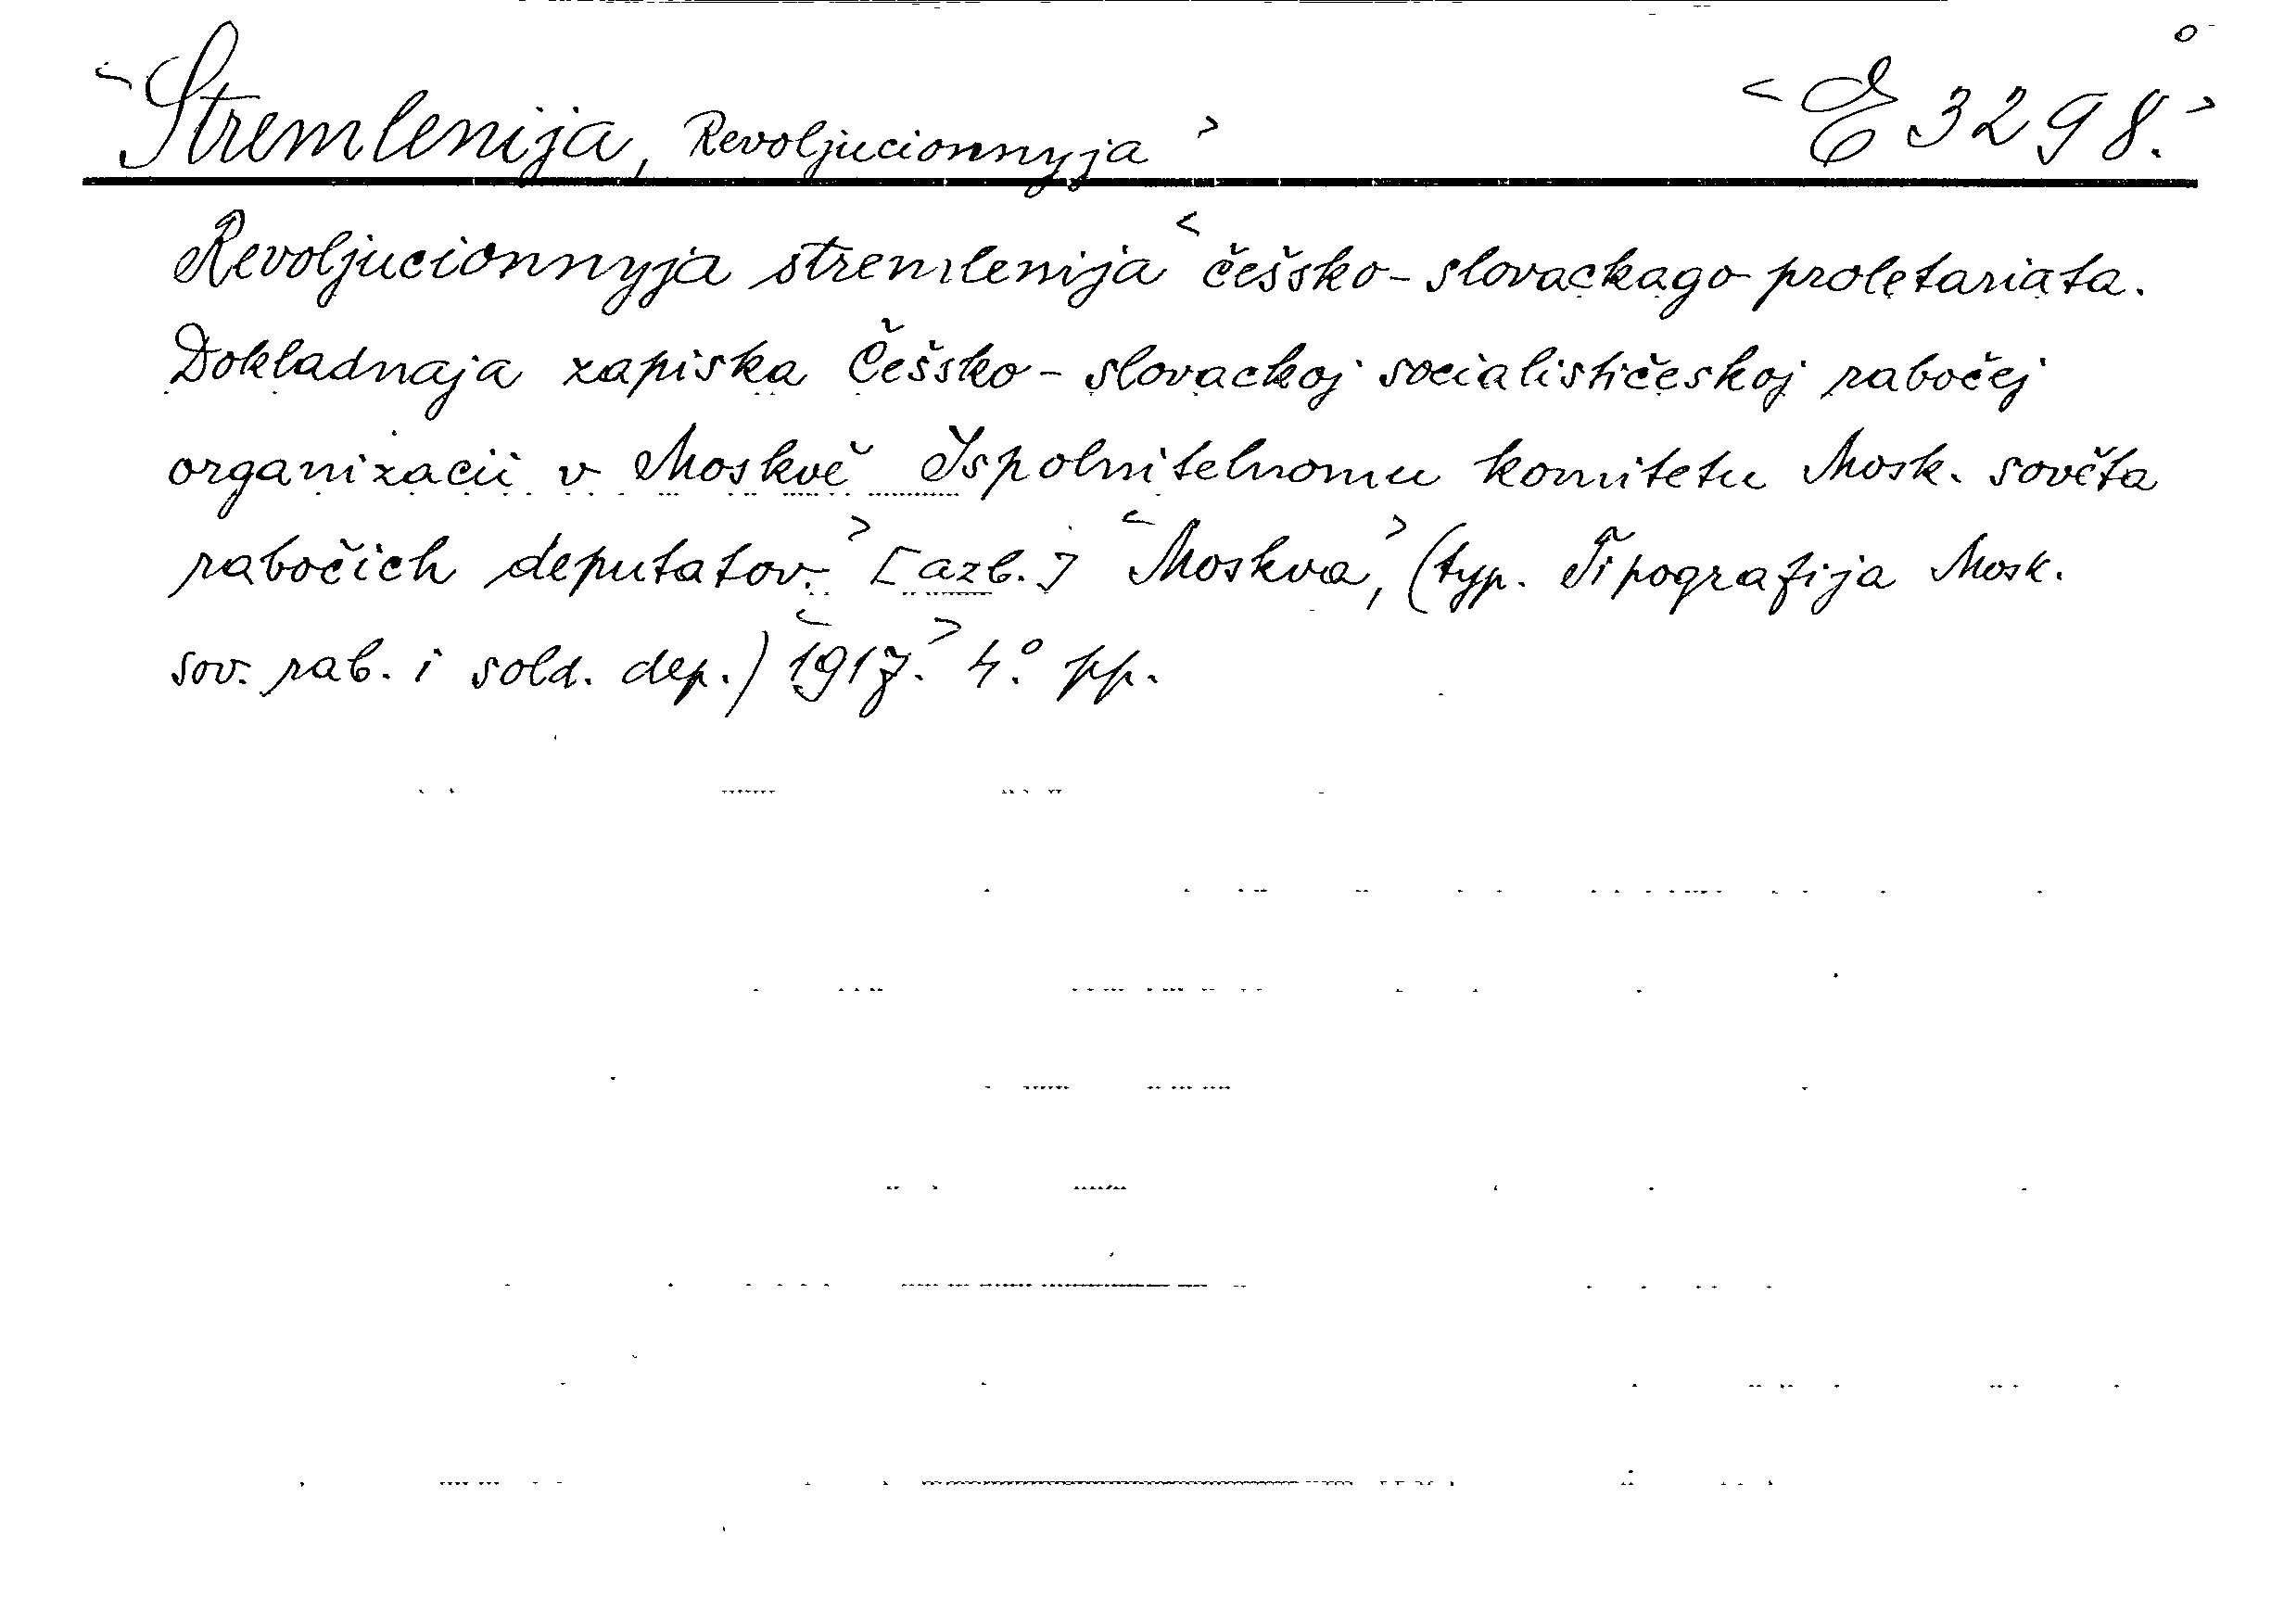 <Stremlenija, Revoljucionnyja> <E 3298.>
Revoljucionnyja stremlenija <češsko-slovackago proletariata.
Dokladnaja zapiska Češsko-slovackoj socialističeskoj rabočej
organizacii v Moskvě Ispolnitelnomu komitetu Mosk. sověta
rabočich deputatov.> [azb.] <Moskva,> (typ. Tipografija Mosk.
sov. rab. i sold. dep.) <1917.> 4.° pp.